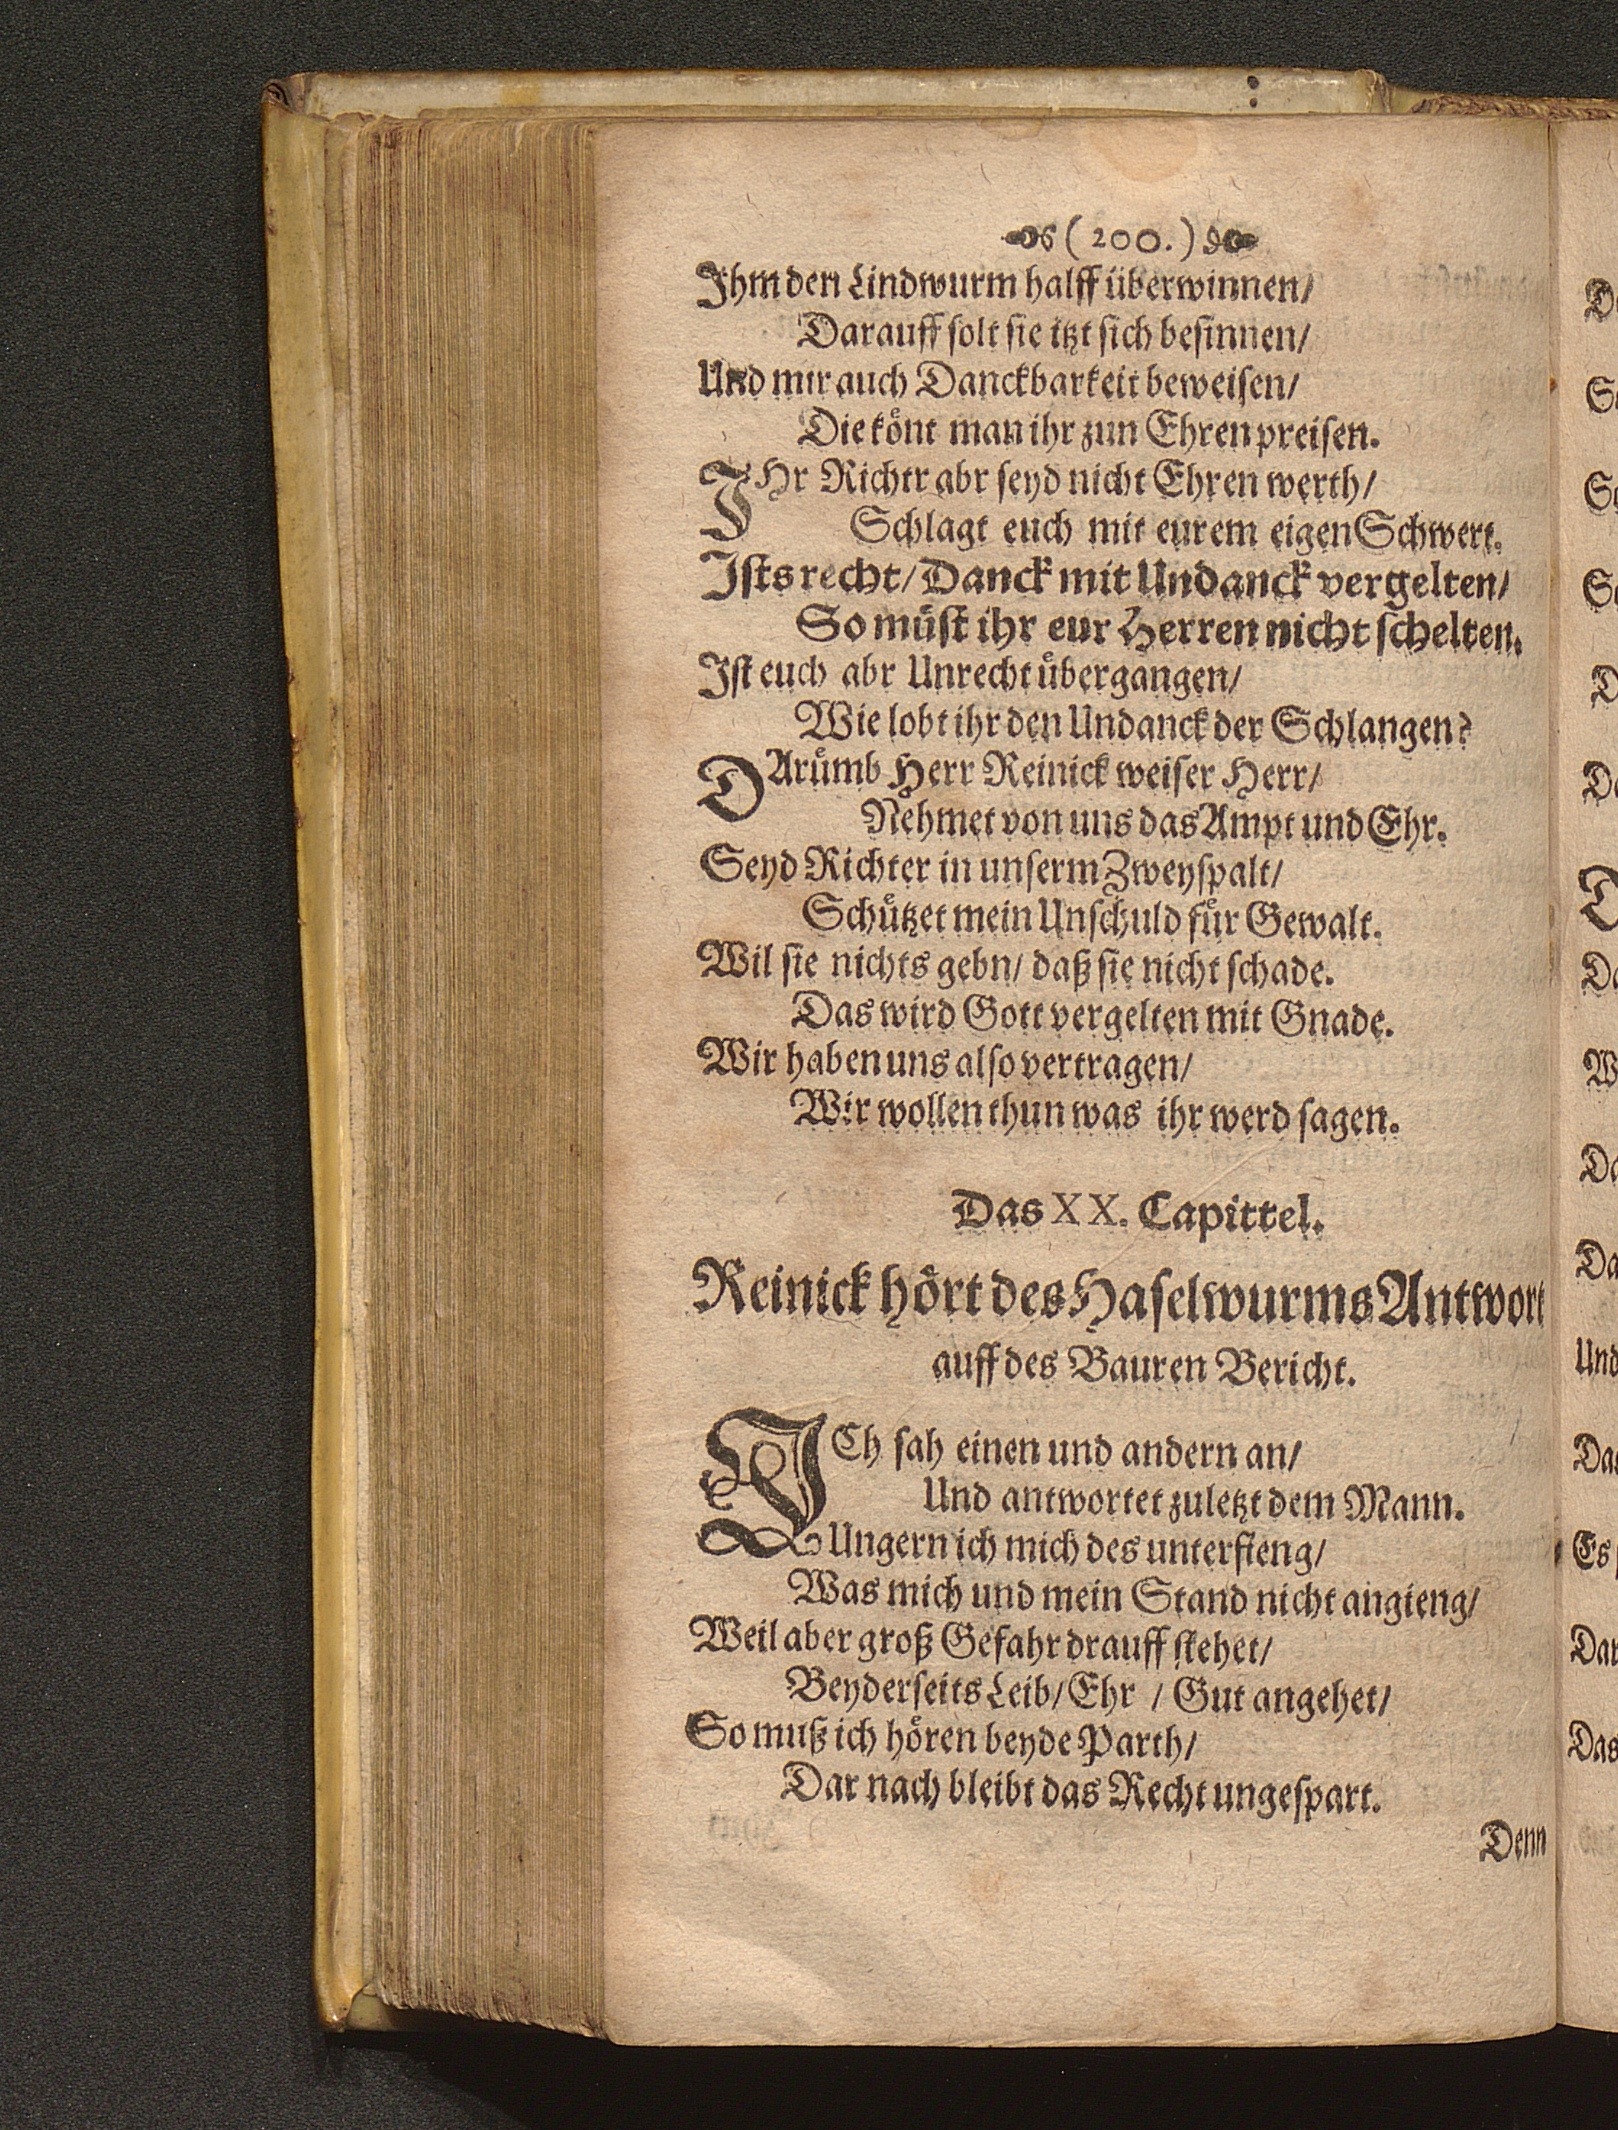 (200.)
Ihm den Lindwurm halff überwinnen/
Darauff solt sie itzt sich besinnen/
Und mir auch Danckbarkeit beweisen/
Die könt man ihr zun Ehren preisen.
IHr Richtr abr seyd nicht Ehren werth/
Schlagt euch mit eurem eigen Schwert.
Ists recht/ Danck mit Undanck vergelten/
So müst ihr eur Herren nicht schelten.
Ist euch abr Unrecht übergangen/
Wie lobt ihr den Undanck der Schlangen?
DArümb Herr Reinick weiser Herr/
Nehmet von uns das Ampt und Ehr.
Seyd Richter in unserm Zweyspalt/
Schützet mein Unschuld für Gewalt.
Wil sie nichts gebn/ daß sie nicht schade.
Das wird Gott vergelten mit Gnade.
Wir haben uns also vertragen/
Wir wollen thun was ihr werd sagen.
Das XX. Capittel.
Reinick hört des Haselwurms Antwort
auff des Bauren Bericht.
ICh sah einen und andern an/
Und antwortet zuletzt dem Mann.
Ungern ich mich des unterfieng/
Was mich und mein Stand nicht angieng/
Weil aber groß Gefahr drauff stehet/
Beyderseits Leib/ Ehr / Gut angehet/
So muß ich hören beyde Parth/
Dar nach bleibt das Recht ungespart.
Denn